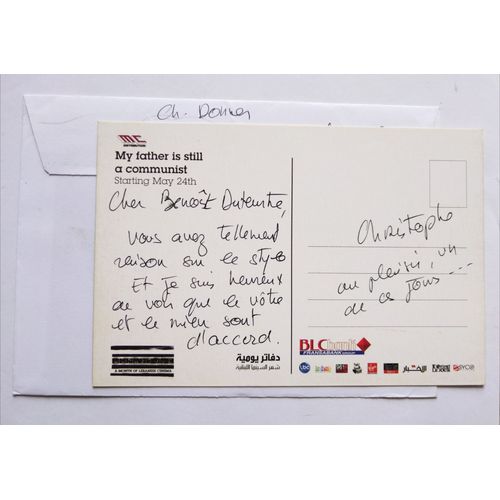 Ch. Donner
MC
DISTRIBUTION
My father is still
a communist
Starting May 24th
Cher Benoît Duteurtre,
Vous avez tellement
raison sur le style
Et je suis heureux
de voir que le vôtre
et le mien sont
d'accord.
Christophe
au plaisir, un
de ces jours...
دفاتر يومية
شهر السينما اللبنانية
A MONTH OF LEBANESE CINEMA
BLCbank
FRANSABANK GROUP
lbc
virgin
الأخبار